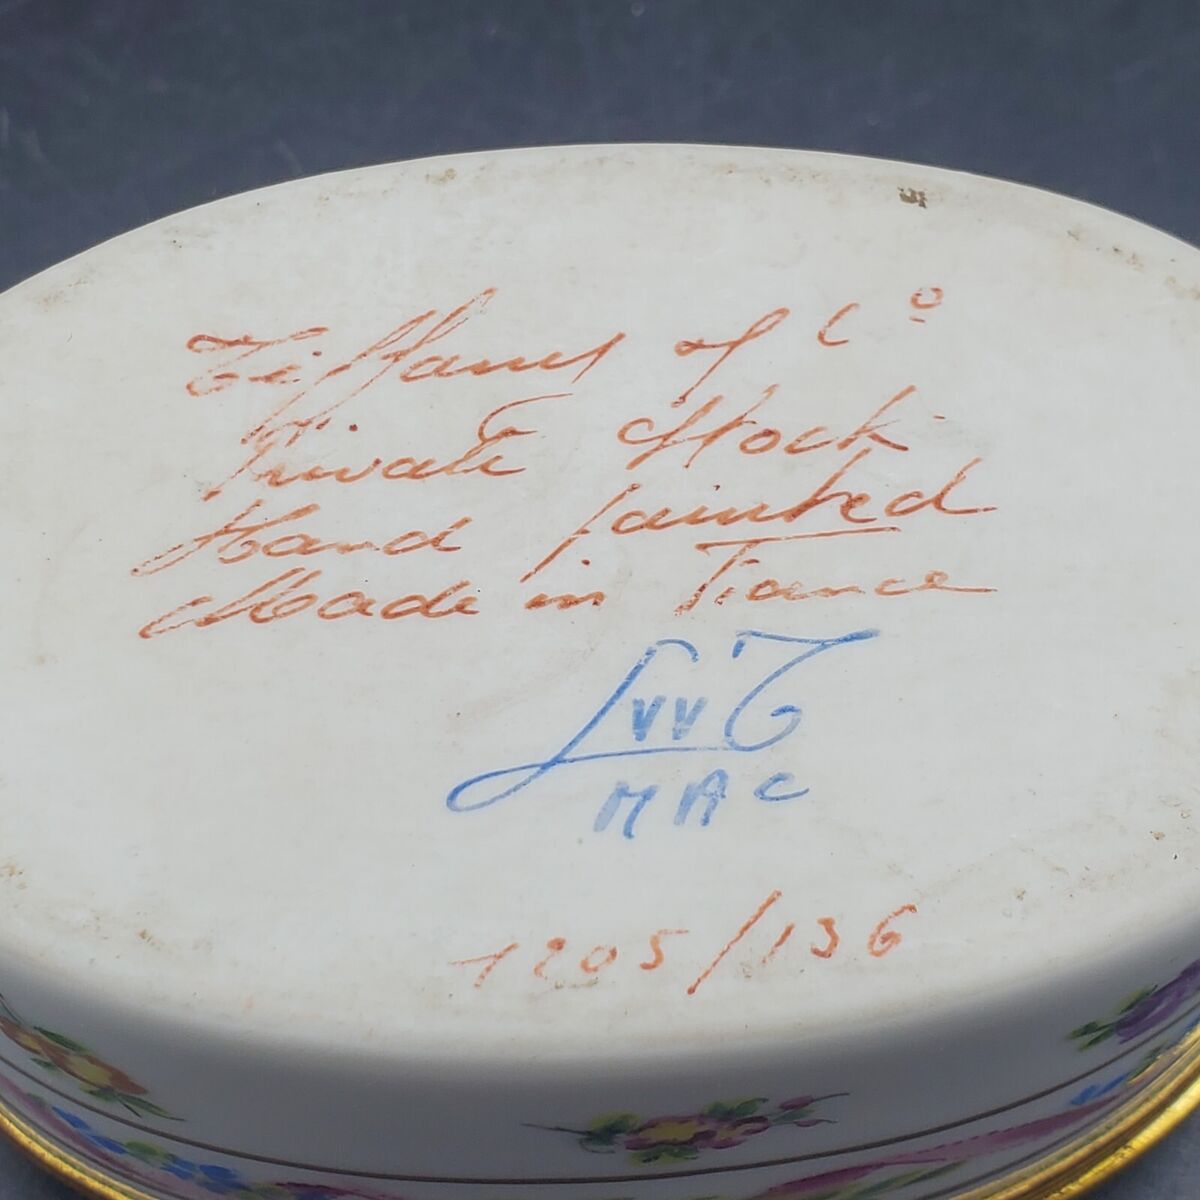 Tiffany & Co
Private Stock
Hand painted
Made in France
MAC
1205/136